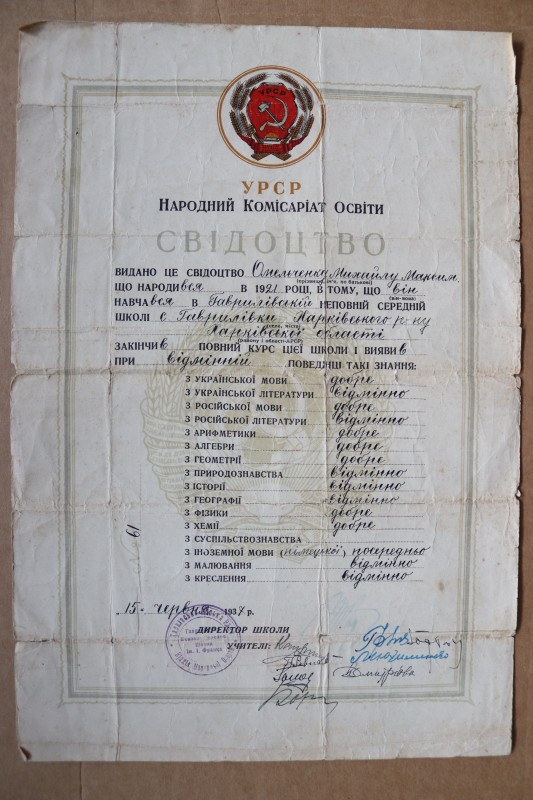 УРСР
УРСР
НАРОДНИЙ КОМІСАРІАТ ОСВІТИ
СВІДОЦТВО
ВИДАНО ЦЕ СВІДОЦТВО Омельченку Михайлу Максим.
(прізвище, ім'я, по батькові)
ЩО НАРОДИвся В 1921 РОЦІ, В ТОМУ, ЩО він
(він-вона)
НАВЧАвся В Гаврилівській НЕПОВНІЙ СЕРЕДНІЙ
ШКОЛІ с. Гаврилівки Харківського р-ну
(село, місто)
Харківської області
(району і області-АРСР)
ЗАКІНЧИв ПОВНИЙ КУРС ЦІЄЇ ШКОЛИ І ВИЯВИв
ПРИ відмінній ПОВЕДІНЦІ ТАКІ ЗНАННЯ:
З УКРАЇНСЬКОЇ МОВИ добре
З УКРАЇНСЬКОЇ ЛІТЕРАТУРИ відмінно
З РОСІЙСЬКОЇ МОВИ добре
З РОСІЙСЬКОЇ ЛІТЕРАТУРИ відмінно
З АРИФМЕТИКИ добре
З АЛГЕБРИ добре
З ГЕОМЕТРІЇ добре
З ПРИРОДОЗНАВСТВА відмінно
З ІСТОРІЇ відмінно
З ГЕОГРАФІЇ відмінно
З ФІЗИКИ добре
З ХЕМІЇ добре
З СУСПІЛЬСТВОЗНАВСТВА
З ІНОЗЕМНОЇ МОВИ (німецької) посередньо
З МАЛЮВАННЯ відмінно
З КРЕСЛЕННЯ відмінно
19
15 червня 1937 р.
ДИРЕКТОР ШКОЛИ
УЧИТЕЛІ: